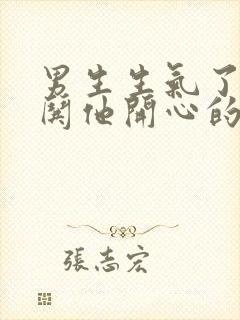 男生生氣了
鬨他開心的
張志宏